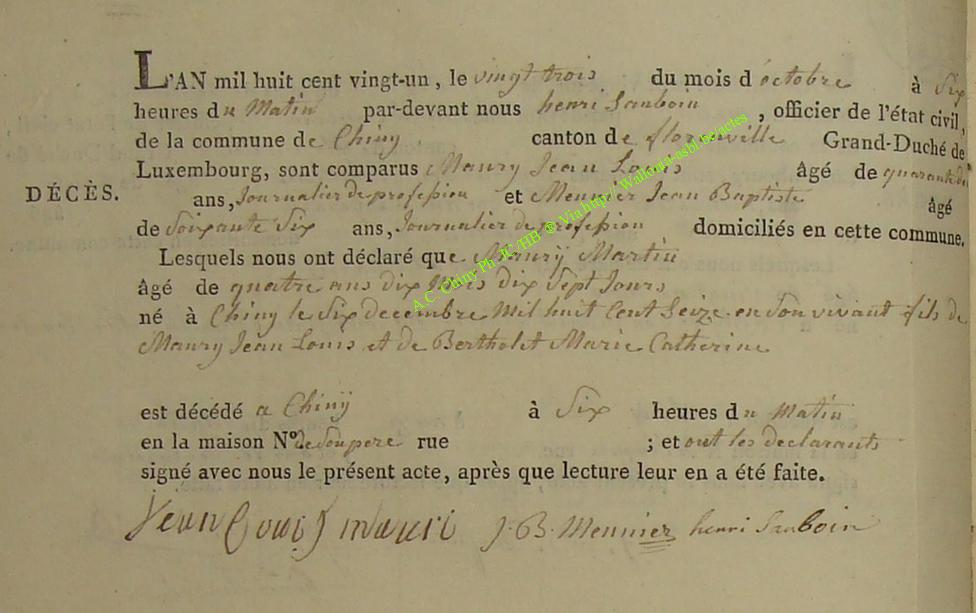 L'AN mil huit cent vingt-un, le vingt trois du mois d'octobre à Six
heures du Matin par-devant nous henri Sauboin, officier de l'état civil,
de la commune de Chiny canton de florenville Grand-Duché de
Luxembourg, sont comparus Maury Jean Louis âgé de quarante
DÉCÈS.
ans, Journalier de profession et Meunier Jean Baptiste âgé
de Soixante Six ans, Journalier de profession domiciliés en cette commune.
Lesquels nous ont déclaré que Maury Martin
âgé de quatre ans dix Mois dix Sept Jours
né à Chiny le Six decembre Mil huit Cent Seize en Son vivant fils de
Maury Jean Louis et de Bertholet Marie Catherine
est décédé a Chiny à Six heures du Matin
en la maison N° de Son pere rue ; et ont les declarants
signé avec nous le présent acte, après que lecture leur en a été faite.
Jean Louis mauri J. B. Meunier henri Sauboin
A.C. Chiny Ph JC/HB ® Via http:/ Wallonia-asbl.be/actes